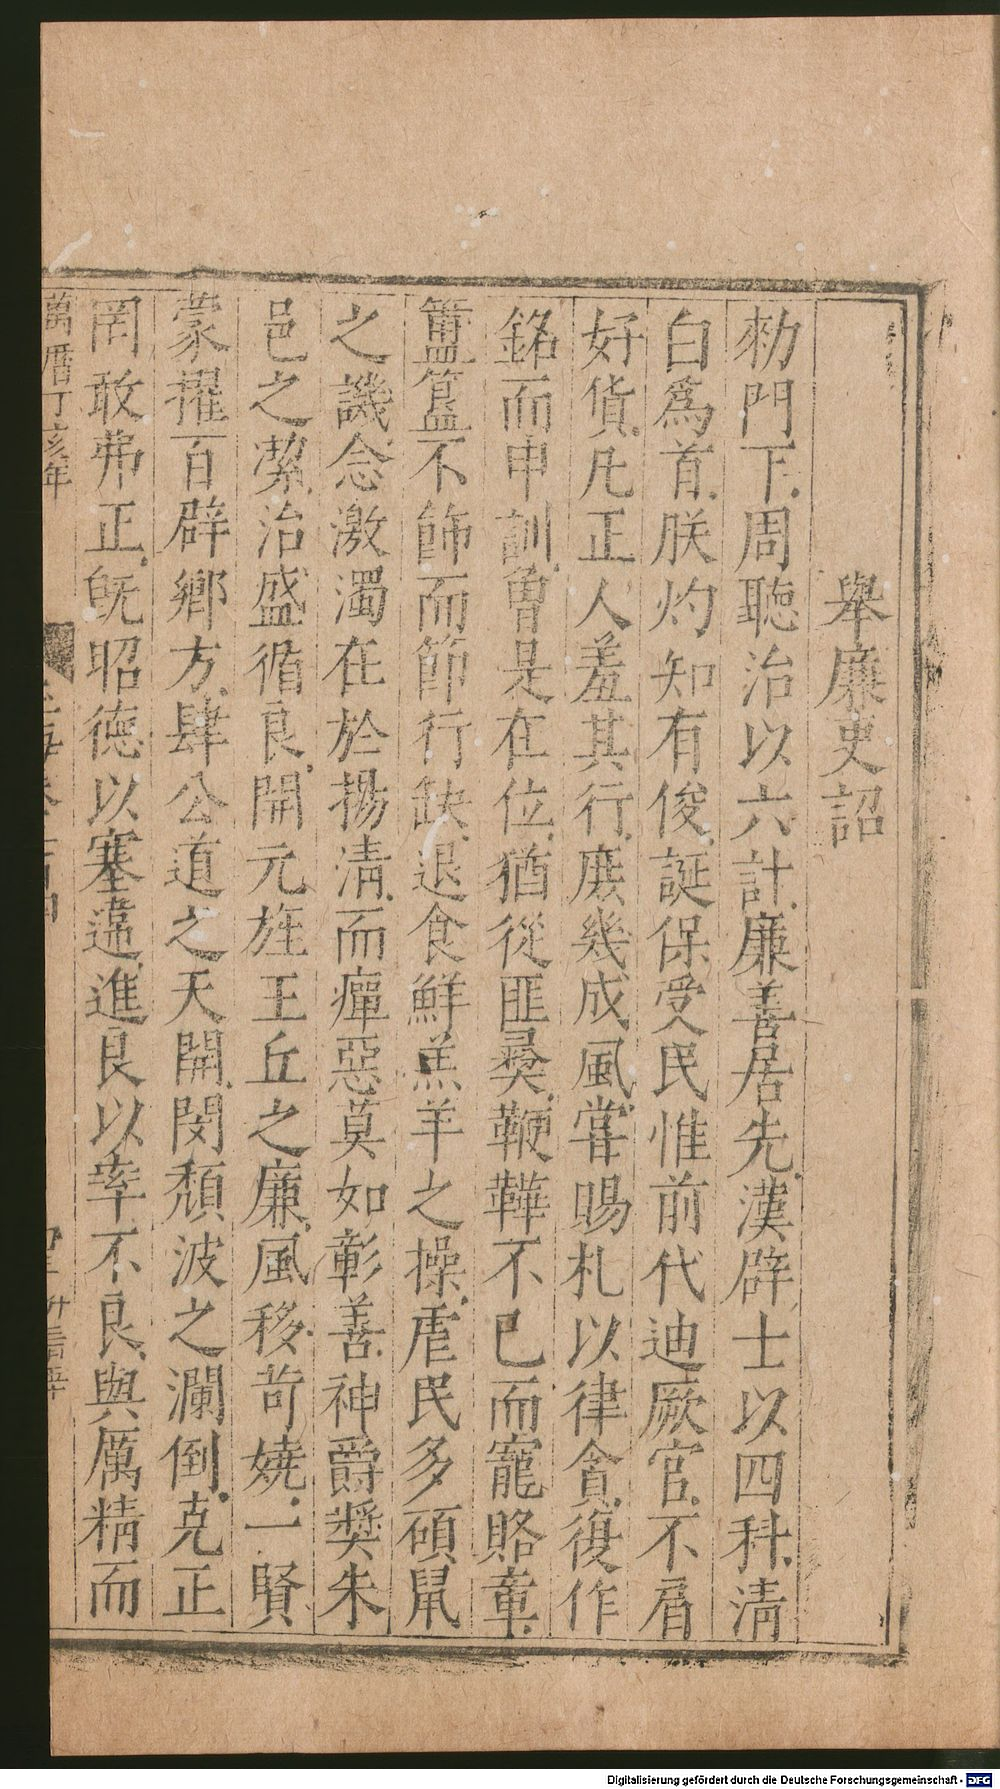 舉廉吏詔
勑門下周聽治以六計廉善居先漢辟士以四科淸
白爲首朕灼知有俊誕保受民惟前代迪厥官不屑
好貨凡正人羞其行庶幾成風嘗賜札以律貪復作
銘而申訓曾是在位猶從匪彛鞭鞾不已而寵賂章
簠簋不飾而節行缺退食鮮羔羊之操虐民多碩鼠
之譏念激濁在於揚淸而癉惡莫如彰善神爵奬朱
邑之潔治盛循良開元旌王丘之廉風移苛嬈一賢
蒙擢百辟鄉方肆公道之天開閔頹波之瀾倒克正
罔敢弗正旣昭德以塞違進良以率不良與厲精而
萬曆丁亥年
Digitalisierung gefördert durch die Deutsche Forschungsgemeinschaft - DFG